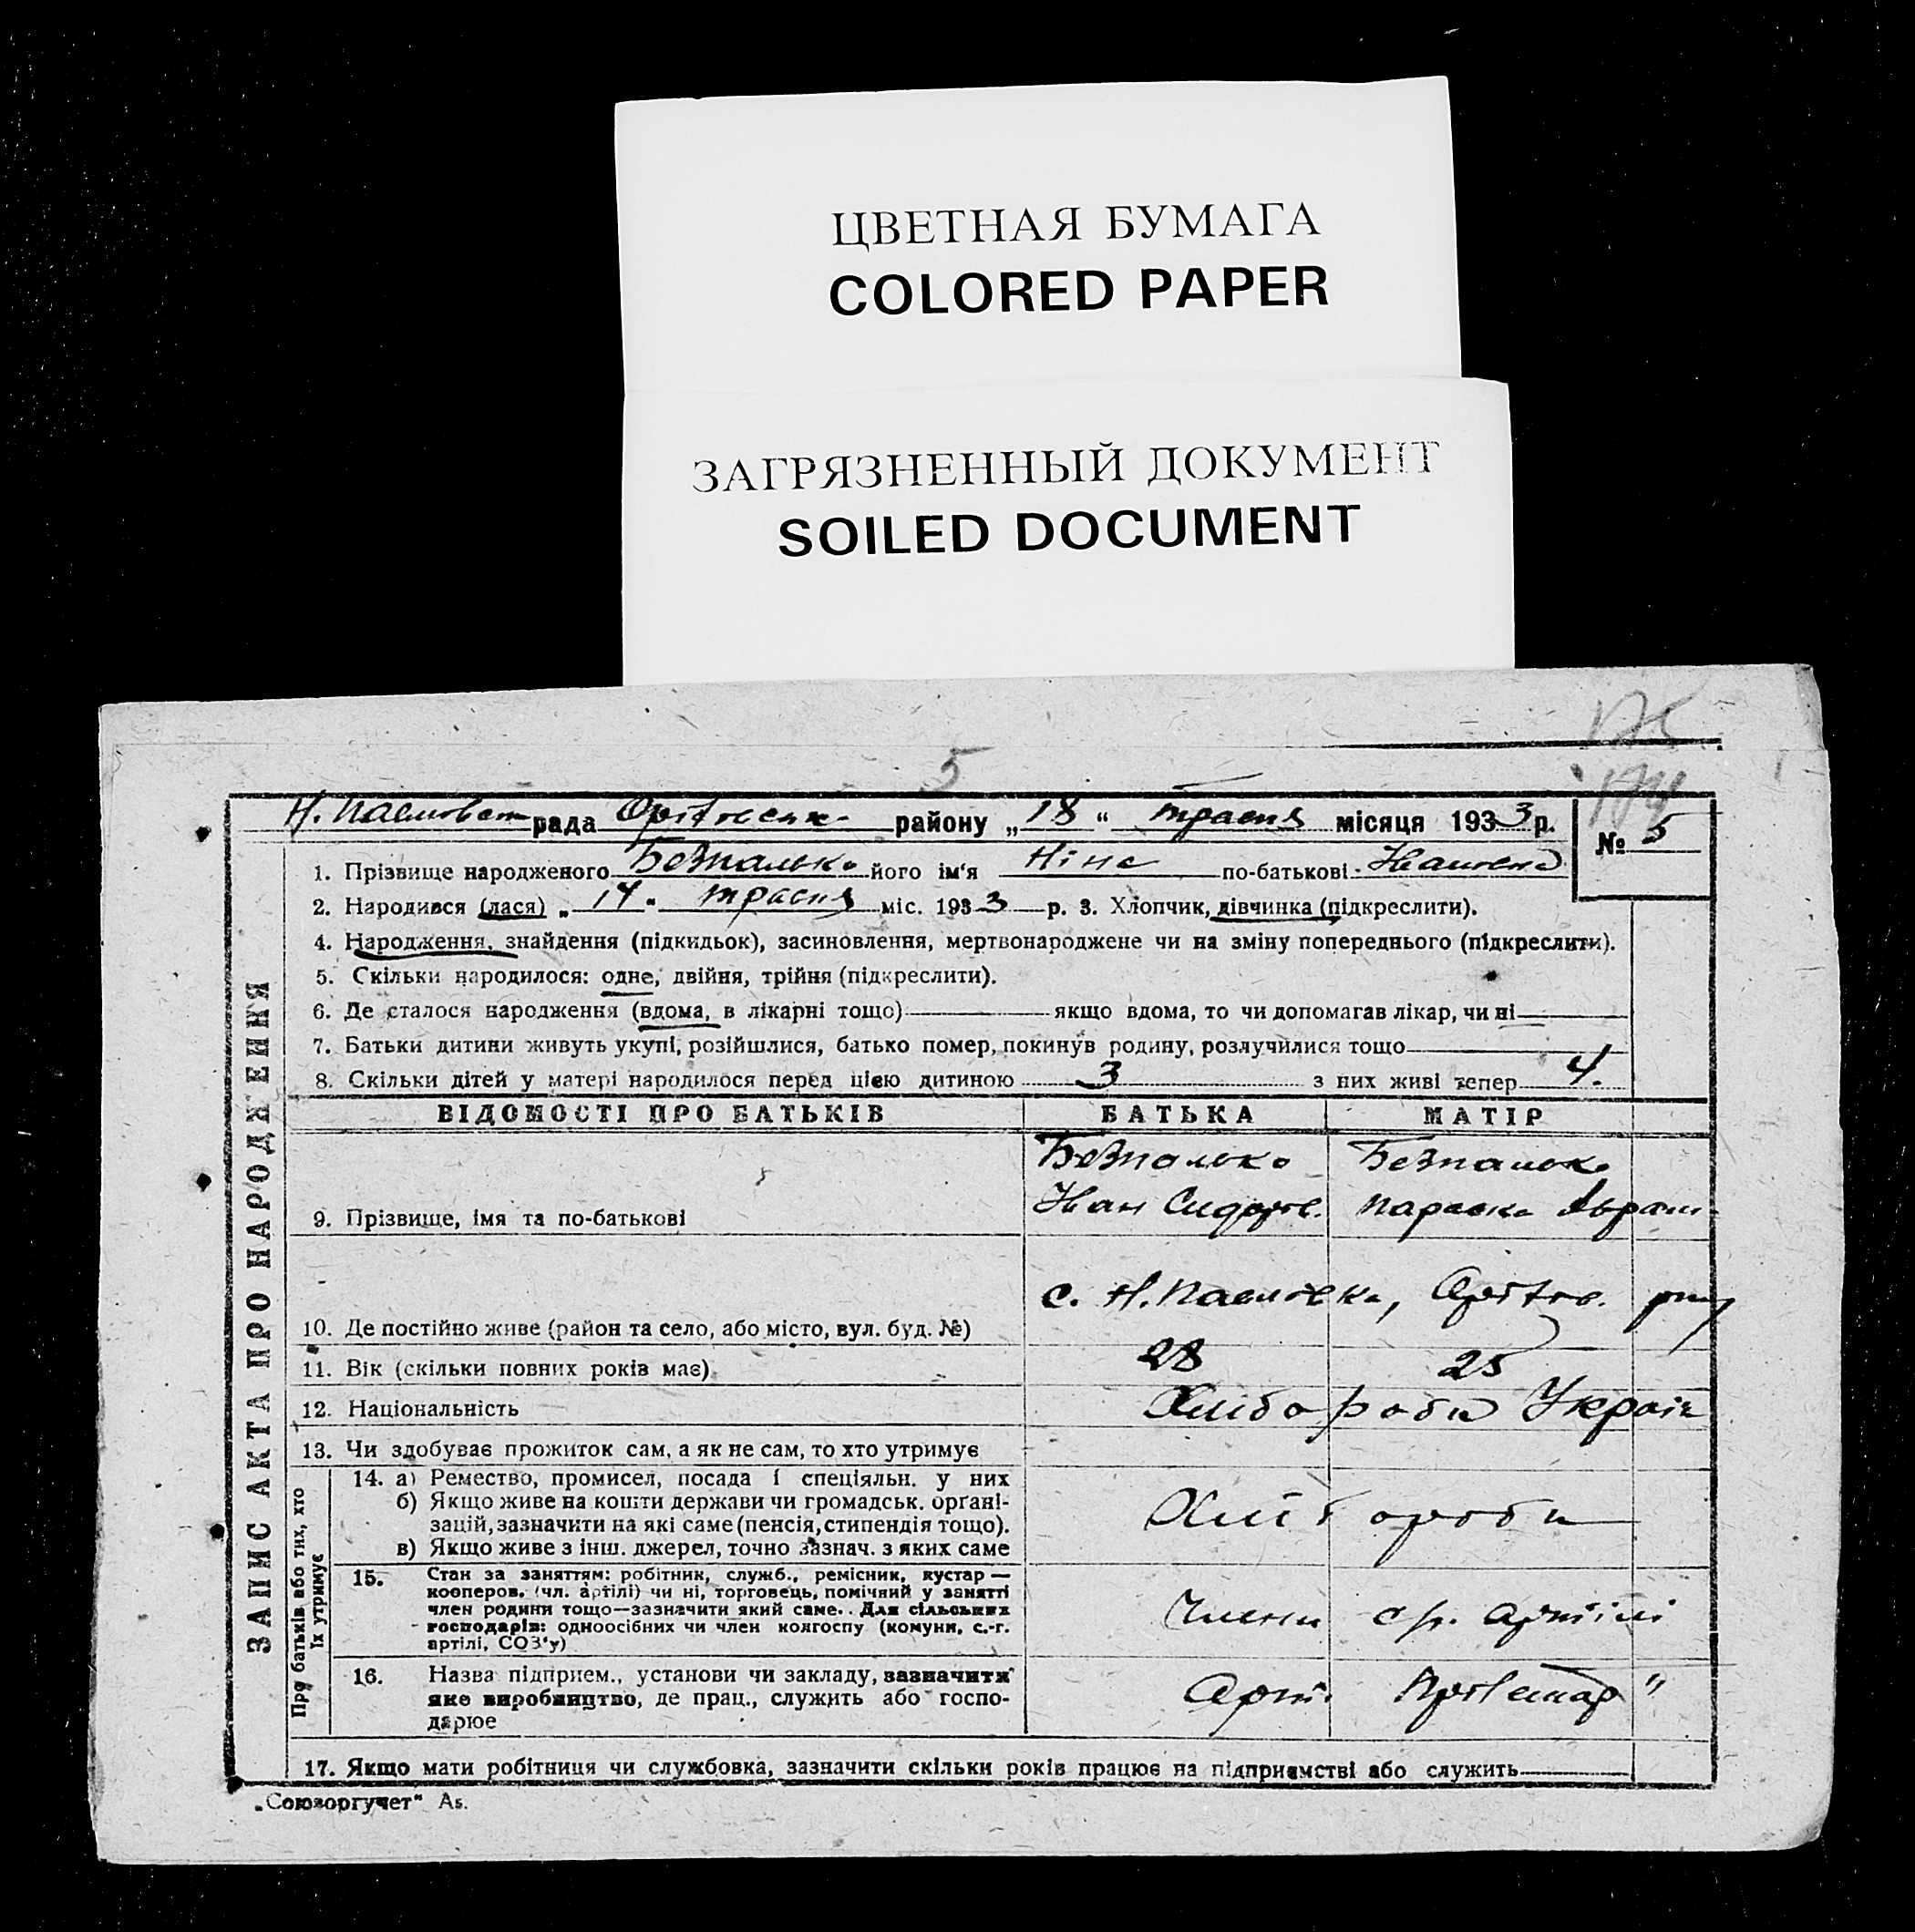 ЦВЕТНАЯ БУМАГА
COLORED PAPER
ЗАГРЯЗНЕННЫЙ ДОКУМЕНТ
SOILED DOCUMENT
175
5
174
рада району „18“ травня місяця 1933 р.
№ 5
1. Прізвище народженого Безпалько його ім'я Ніна по-батькові
2. Народився (лася) „17“ травня міс. 1933 р. 3. Хлопчик, дівчинка (підкреслити).
4. Народження, знайдення (підкидьок), засиновлення, мертвонароджене чи на зміну попереднього (підкреслити).
5. Скільки народилося: одне, двійня, трійня (підкреслити).
6. Де сталося народження (вдома, в лікарні тощо) якщо вдома, то чи допомагав лікар, чи ні
7. Батьки дитини живуть укупі, розійшлися, батько помер, покинув родину, розлучилися тощо
8. Скільки дітей у матері народилося перед цією дитиною 3 з них живі тепер 4.
ВІДОМОСТІ ПРО БАТЬКІВ БАТЬКА МАТІР
Безпалько Безпалько
Іван Сидоров. Параска Аврам.
9. Прізвище, імя та по-батькові
с. Н. Павловка,
10. Де постійно живе (район та село, або місто, вул. буд. №)
11. Вік (скільки повних років має) 28 25
12. Національність Хлібороби Україн
13. Чи здобуває прожиток сам, а як не сам, то хто утримує
14. а) Ремество, промисел, посада і спеціяльн. у них
б) Якщо живе на кошти держави чи громадськ. органі-
зацій, зазначити на які саме (пенсія, стипендія тощо).
в) Якщо живе з інш. джерел, точно зазнач. з яких саме
Хлібороби
15. Стан за заняттям: робітник, служб., ремісник, кустар —
кооперов. (чл. артілі) чи ні, торговець, помічний у занятті
член родини тощо—зазначити який саме. Для сільських
господарів: одноосібних чи член колгоспу (комуни, с.-г.
артілі, СОЗ'у)
Члени с/г. артілі
16. Назва підприєм., установи чи закладу, зазначити
яке виробництво, де прац., служить або госпо-
дарює
Арт. Пролетар"
17. Якщо мати робітниця чи службовка, зазначити скільки років працює на підприємстві або служить
ЗАПИС АКТА ПРО НАРОДЖЕННЯ
Про батьків або тих, хто
їх утримує
„Союзоргучет" As.